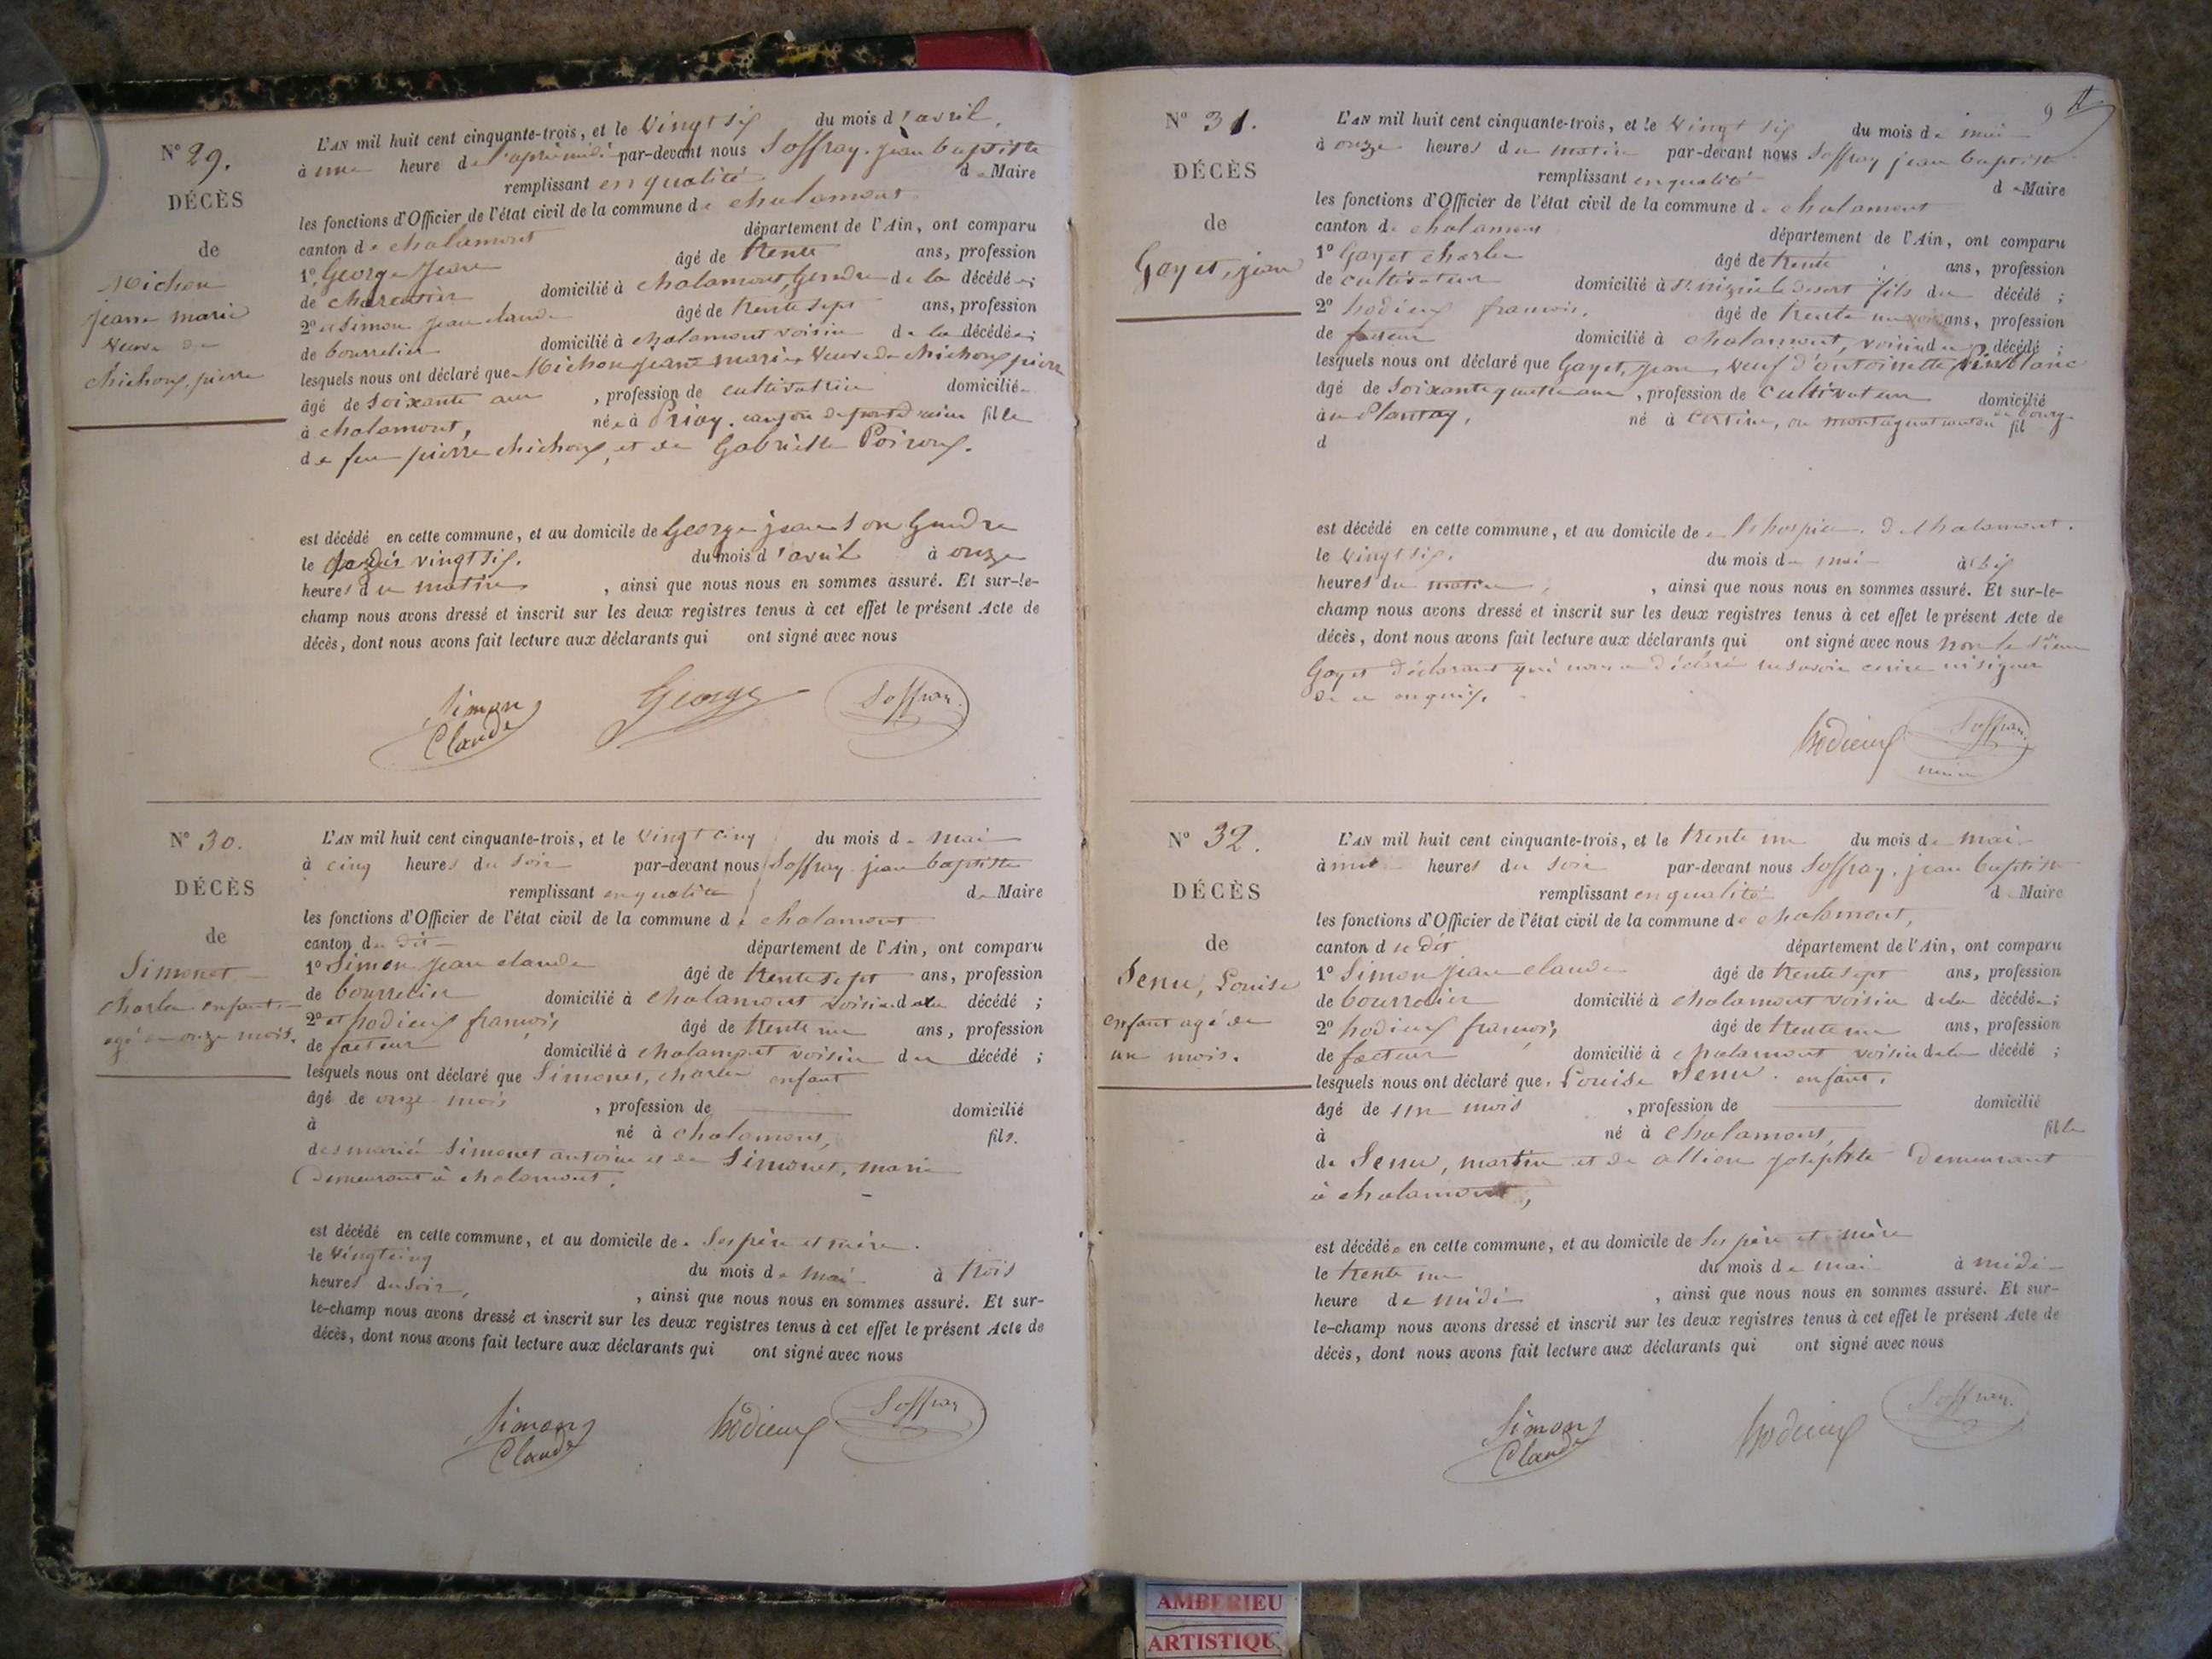 N° 29.
DÉCÈS
de
Michon
jeanne marie
veuve de
chichoux pierre
L'AN mil huit cent cinquante-trois, et le vingt six du mois d'avril,
à une heure de l'après midi par-devant nous Soffray. jean baptiste
remplissant en qualité de Maire
les fonctions d'Officier de l'état civil de la commune de chalamont
canton de chalamont département de l'Ain, ont comparu
1° George Jean âgé de trente ans, profession
de domicilié à chalamont, gendre de la décédée;
2° et Simon jean claude âgé de trente sept ans, profession
de bourrelier domicilié à chalamont voisin de la décédée;
lesquels nous ont déclaré que Michon jeanne marie, veuve de chichoux pierre
âgé de soixante ans, profession de cultivatrice domiciliée
à chalamont, née à Priay. canton de pont d'ain fille
de feu pierre chichoux, et de Gabrielle Poiroux.
est décédé en cette commune, et au domicile de George jean son gendre
le vingt six. du mois d'avril à onze
heures du matin, ainsi que nous nous en sommes assuré. Et sur-le-
champ nous avons dressé et inscrit sur les deux registres tenus à cet effet le présent Acte de
décès, dont nous avons fait lecture aux déclarants qui ont signé avec nous
Simon Claude George Soffray
N° 30.
DÉCÈS
de
Simonet
charles enfant
agé de onze mois.
L'AN mil huit cent cinquante-trois, et le vingt cinq du mois de mai
à cinq heures du soir par-devant nous Soffray jean baptiste
remplissant en qualité de Maire
les fonctions d'Officier de l'état civil de la commune de chalamont
canton du dit département de l'Ain, ont comparu
1° Simon jean claude âgé de trente sept ans, profession
de bourrelier domicilié à chalamont voisin du décédé;
2° et hodieux françois âgé de trente un ans, profession
de facteur domicilié à chalamont voisin du décédé;
lesquels nous ont déclaré que Simonet, charles enfant
âgé de onze mois, profession de domicilié
à né à chalamont, fils.
des mariés Simonet antoine et de Simonet, marie
Demeurant à chalamont.
est décédé en cette commune, et au domicile de ses père et mère.
le vingt cinq du mois de mai à trois
heures du soir, ainsi que nous nous en sommes assuré. Et sur-
le-champ nous avons dressé et inscrit sur les deux registres tenus à cet effet le présent Acte de
décès, dont nous avons fait lecture aux déclarants qui ont signé avec nous
Simon Claude hodieux Soffray
9
N° 31.
DÉCÈS
de
Gayet, jean
L'AN mil huit cent cinquante-trois, et le vingt six du mois de mai
à onze heures du matin par-devant nous Soffray jean baptiste
remplissant en qualité de Maire
les fonctions d'Officier de l'état civil de la commune de chalamont
canton de chalamont département de l'Ain, ont comparu
1° Gayet charles âgé de trente ans, profession
de cultivateur domicilié à St nizier le desert fils du décédé;
2° hodieux francois. âgé de trente un ans, profession
de facteur domicilié à chalamont, voisin du décédé;
lesquels nous ont déclaré que Gayet, jean, veuf d'antoinette
âgé de soixante quatre ans, profession de cultivateur domicilié
au Plantay, né à Certine, ou montagnat canton de bourg fil
d
est décédé en cette commune, et au domicile de l'hospice de chalamont.
le vingt six. du mois de mai à six
heures du matin, ainsi que nous nous en sommes assuré. Et sur-le-
champ nous avons dressé et inscrit sur les deux registres tenus à cet effet le présent Acte de
décès, dont nous avons fait lecture aux déclarants qui ont signé avec nous non le Sieur
Gayet déclarant qui nous a déclaré ne savoir ecrire ni signer
de ce enquis.
hodieux Soffray
maire
N° 32.
DÉCÈS
de
Senu, Louise
enfant agé de
un mois.
L'AN mil huit cent cinquante-trois, et le trente un du mois de mai
à heures du soir par-devant nous Soffray. jean baptiste
remplissant en qualité de Maire
les fonctions d'Officier de l'état civil de la commune de chalamont,
canton du dit département de l'Ain, ont comparu
1° Simon jean claude âgé de trente sept ans, profession
de bourrelier domicilié à chalamont voisin de la décédée;
2° hodieux françois âgé de trente un ans, profession
de facteur domicilié à chalamont voisin de la décédé;
lesquels nous ont déclaré que Louise Senu. enfant.
âgé de un mois, profession de domicilié
à né à chalamont, fille
de Senu, martin et de josephte Demeurant
à chalamont,
est décédée en cette commune, et au domicile de ses père et mère
le trente un du mois de mai à midi
heure de midi, ainsi que nous nous en sommes assuré. Et sur-
le-champ nous avons dressé et inscrit sur les deux registres tenus à cet effet le présent Acte de
décès, dont nous avons fait lecture aux déclarants qui ont signé avec nous
Simon Claude hodieux Soffray
AMBERIEU
ARTISTIQU